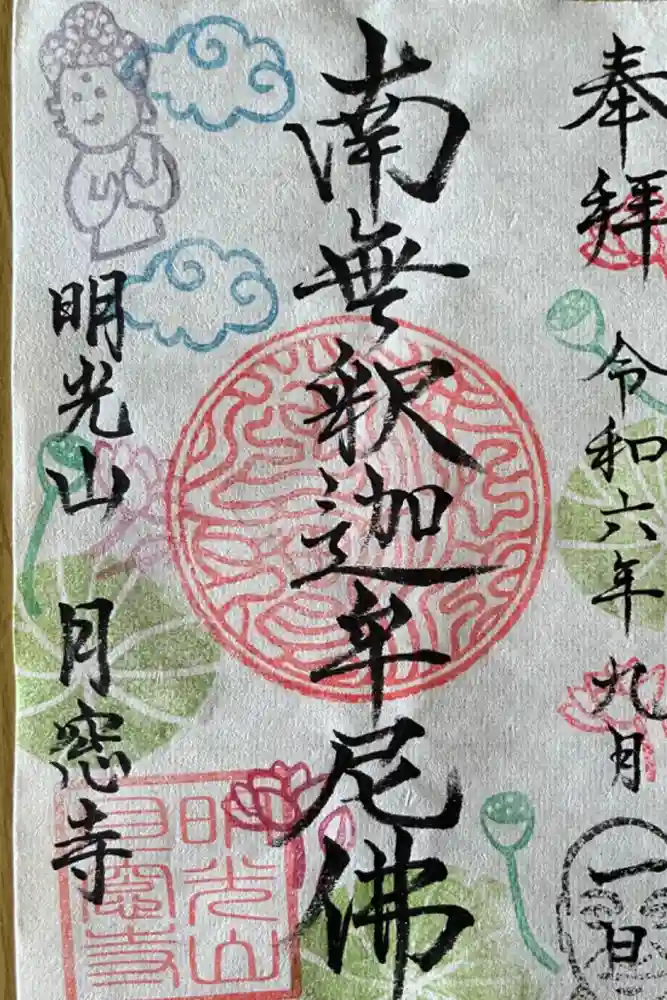 奉拝 令和六年九月一日
南無釈迦牟尼佛
明光山 月窓寺
明光山
月窓寺